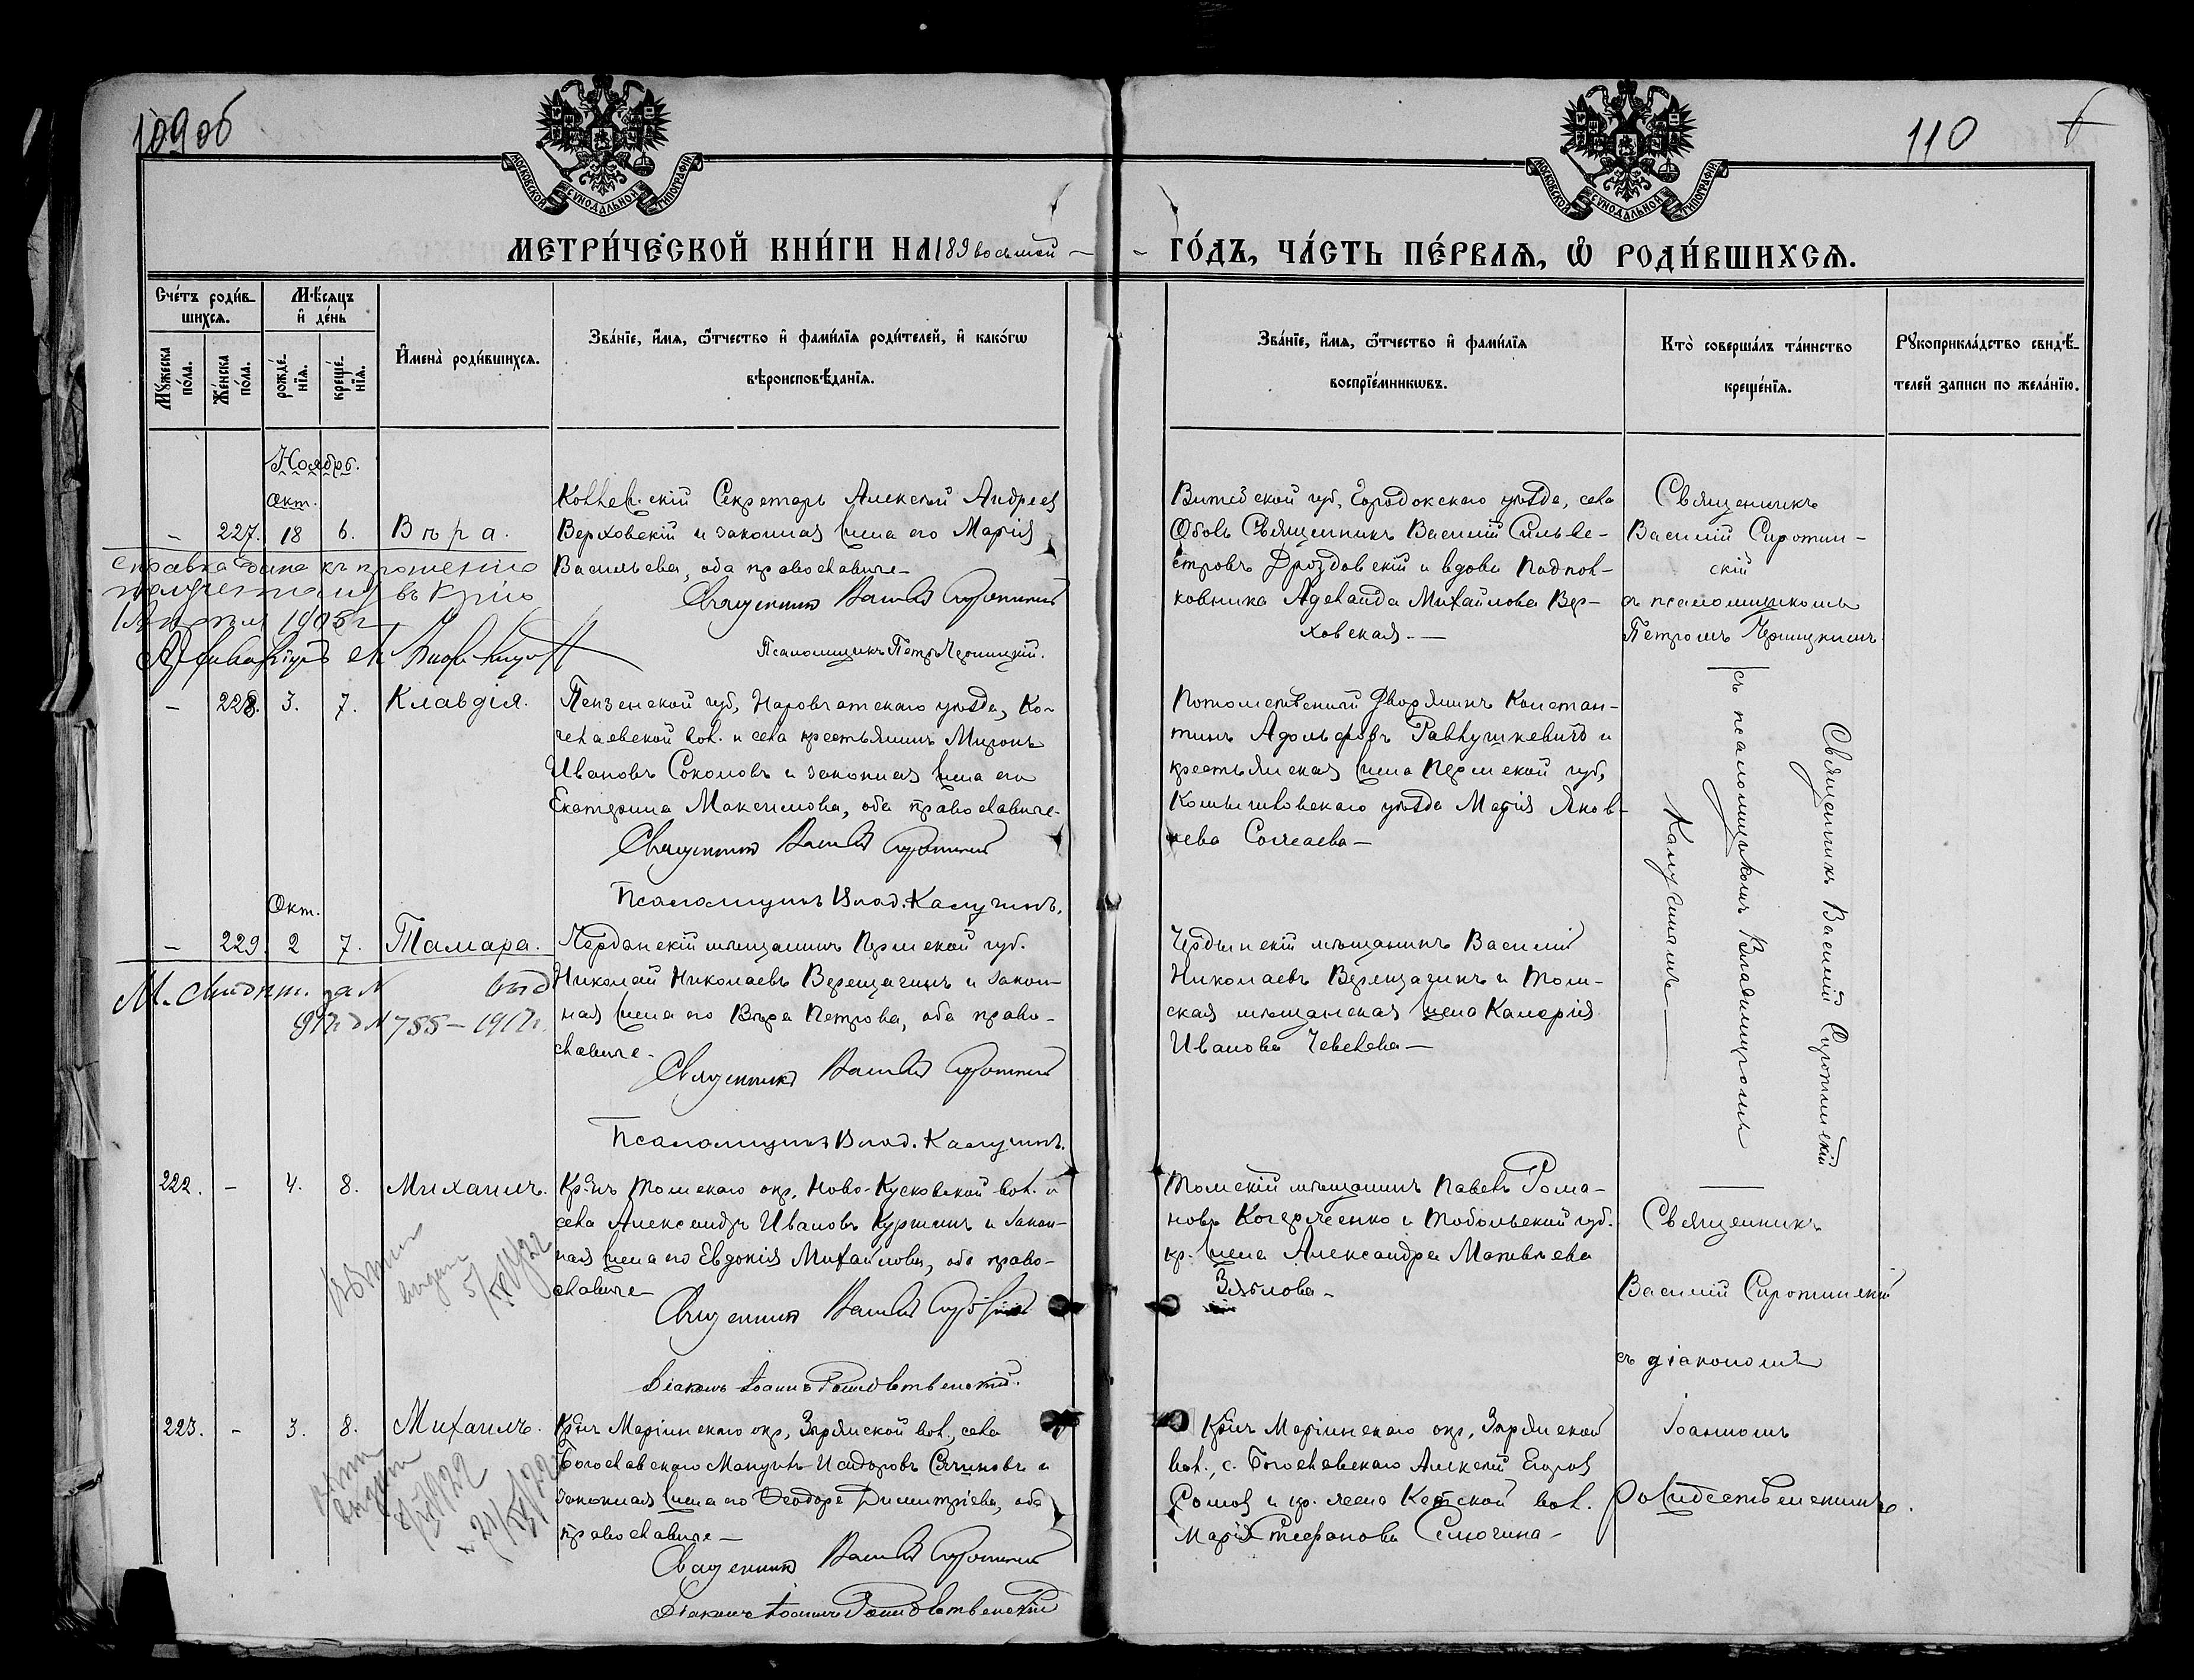 109об
110
МОСКОВСКОЙ СѴНОДАЛЬНОЙ ТИПОГРАФІИ
МОСКОВСКОЙ СѴНОДАЛЬНОЙ ТИПОГРАФІИ
МЕТРИ́ЧЕСКОЙ КНИ́ГИ НА 189 восьмой —
— ГО́ДЪ, ЧА́СТЬ ПЕ́РВАѦ, Ѡ҆ РОДИ́ВШИХСѦ.
Сче́тъ роди́в-
шихсѧ.
Мꙋ́жеска по́ла.
Же́нска по́ла.
Мѣ́сѧцъ
и҆ де́нь
рожде́-
нїѧ.
креще́-
нїѧ.
И҆мена̀ роди́вшихсѧ.
Зва́нїе, и҆́мѧ, ѻ҆́тчество и҆ фами́лїѧ роди́телей, и҆ како́гѡ
вѣроисповѣ́данїѧ.
Зва́нїе, и҆́мѧ, ѻ҆́тчество и҆ фами́лїѧ
воспрїе́мникѡвъ.
Кто̀ соверша́лъ та́инство
креще́нїѧ.
Рꙋкоприкла́дство свидѣ́-
телей записи по жела́нїю.
Ноябрь.
Окт.
– 227. 18 6. Вѣра.
Справка дана къ прошенію
1905 г.
Секретарь Алексѣй Андреев
Верховскій и законная жена его Марія
Васильева, оба православные
Священникъ Василій Сиротинскій
Псаломщикъ Петръ Черницкій.
Витебской губ, Городокскаго уѣзда, села
Священникъ Василій Сильве-
стровъ Дроздовскій и вдова Подпол-
ковника Аделаида Михайлова Вер-
ховская —
Священникъ
Василій Сиротин-
скій
съ псаломщикомъ
Петромъ Черницкимъ
– 228. 3. 7. Клавдія.
Пензенской губ, Наровчатскаго уѣзда, Ко-
челаевской вол. и села крестьянинъ Миронъ
Ивановъ Соколовъ и законная жена его
Екатерина Максимова, оба православные
Священникъ Василій Сиротинскій
Псаломщикъ Влад. Калугинъ.
Потомственный Дворянинъ Констан-
тинъ Адольфовъ и
крестьянская жена Пермской губ,
уѣзда Марія Яков-
лева
Священникъ Василій Сиротинскій
съ псаломщикомъ Владимиромъ
Калугинымъ —
Окт.
– 229. 2 7. Тамара.
755 – 1917 г.
Чердынскій мѣщанинъ Пермской губ.
Николай Николаевъ Верещагинъ и закон-
ная жена его Вѣра Петрова, оба право-
славные
Священникъ Василій Сиротинскій
Псаломщикъ Влад. Калугинъ.
Чердынскій мѣщанинъ Василій
Николаевъ Верещагинъ и Том-
ская мѣщанская жена Калерія
Иванова —
222. – 4. 8. Михаилъ.
Кр–нъ Томскаго окр, Ново-Кусковской вол. и
села Александръ Ивановъ и закон-
ная жена его Евдокія Михайлова, оба право-
славные
Священникъ Василій Сиротинскій
Діаконъ Іоаннъ Рождественскій.
Томскій мѣщанинъ Павелъ Рома-
новъ и Тобольской губ.
кр. жена Александра Матвѣева
Священникъ
Василій Сиротинскій
съ діакономъ
Іоанномъ
Рождественскимъ.
223. – 3. 8. Михаилъ.
Кр–нъ Маріинскаго окр, Зырянской вол., села
Богословскаго Исидоровъ и
законная жена его Ѳеодора Димитріева, оба
православные —
Священникъ Василій Сиротинскій
Діаконъ Іоаннъ Рождественскій
Кр–нъ Маріинскаго окр, Зырянской
вол., с. Богословскаго Алексѣй Егоров
и кр. жена Кетской вол.
Марія Стефанова